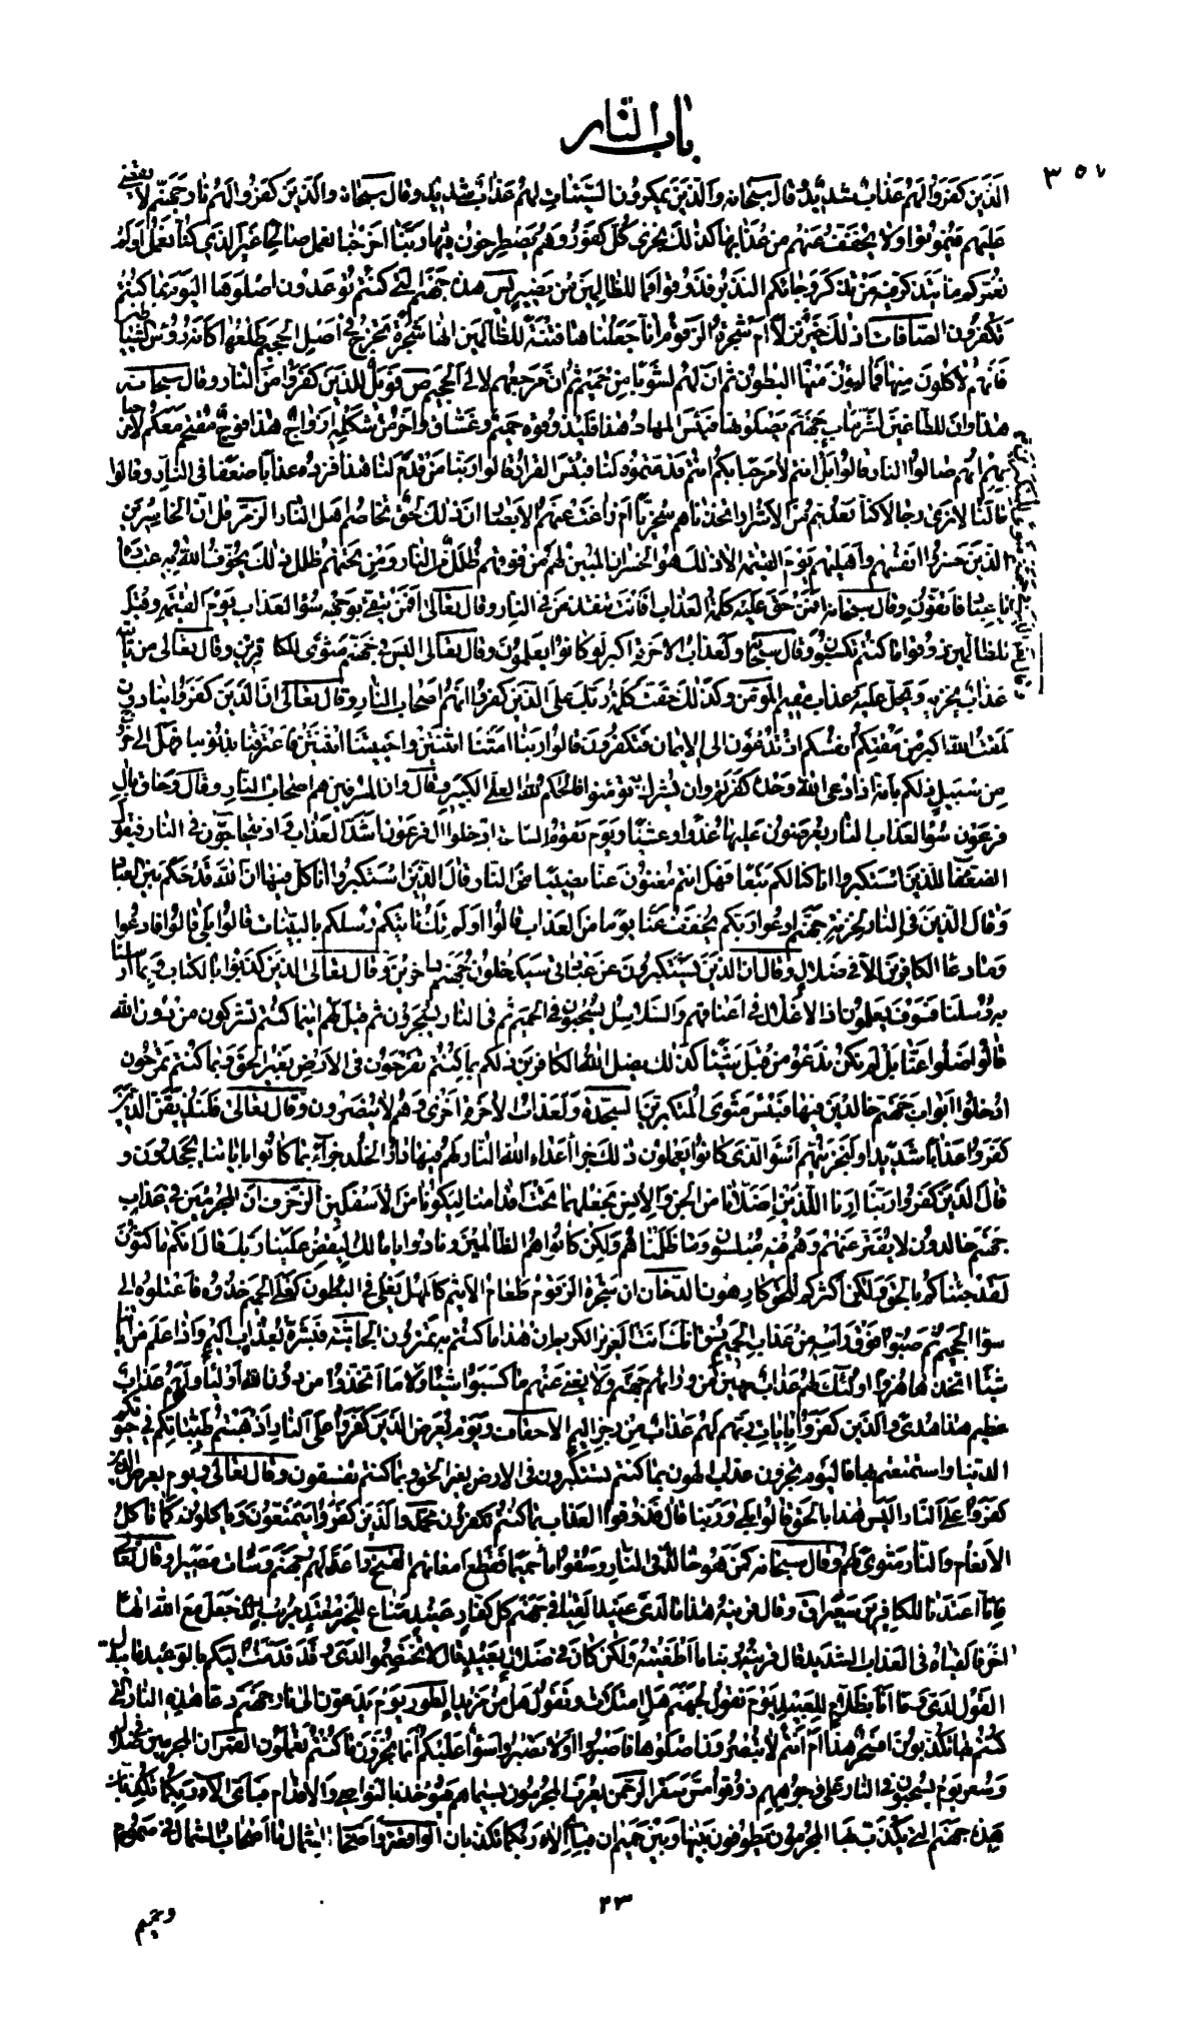 باب النار
٣٥٧
الَّذينَ كَفَرُوا لَهُمْ عَذابٌ شَديدٌ وقال سبحانه وَالَّذينَ يَمْكُرُونَ السَّيِّئاتِ لَهُمْ عَذابٌ شَديدٌ وقال سبحانه وَالَّذينَ كَفَرُوا لَهُمْ نارُ جَهَنَّمَ لا يُقْضى
عَلَيْهِمْ فَيَمُوتُوا وَلا يُخَفَّفُ عَنْهُمْ مِنْ عَذابِها كَذلِكَ نَجْزي كُلَّ كَفُورٍ وَهُمْ يَصْطَرِخُونَ فيها رَبَّنا أَخْرِجْنا نَعْمَلْ صالِحًا غَيْرَ الَّذي كُنَّا نَعْمَلُ أَوَلَمْ
نُعَمِّرْكُمْ ما يَتَذَكَّرُ فيهِ مَنْ تَذَكَّرَ وَجاءَكُمُ النَّذيرُ فَذُوقُوا فَما لِلظَّالِمينَ مِنْ نَصيرٍ يس هذِهِ جَهَنَّمُ الَّتي كُنْتُمْ تُوعَدُونَ اصْلَوْهَا الْيَوْمَ بِما كُنْتُمْ
تَكْفُرُونَ الصافات أَذلِكَ خَيْرٌ نُزُلًا أَمْ شَجَرَةُ الزَّقُّومِ إِنَّا جَعَلْناها فِتْنَةً لِلظَّالِمينَ إِنَّها شَجَرَةٌ تَخْرُجُ في أَصْلِ الْجَحيمِ طَلْعُها كَأَنَّهُ رُؤُسُ الشَّياطينِ
فَإِنَّهُمْ لَآكِلُونَ مِنْها فَمالِؤُنَ مِنْهَا الْبُطُونَ ثُمَّ إِنَّ لَهُمْ لَشَوْبًا مِنْ حَميمٍ ثُمَّ إِنَّ مَرْجِعَهُمْ لَإِلَى الْجَحيمِ ص فَوَيْلٌ لِلَّذينَ كَفَرُوا مِنَ النَّارِ وقال سبحانه
هذا وَإِنَّ لِلطَّاغينَ لَشَرَّ مَآبٍ جَهَنَّمَ يَصْلَوْنَها فَبِئْسَ الْمِهادُ هذا فَلْيَذُوقُوهُ حَميمٌ وَغَسَّاقٌ وَآخَرُ مِنْ شَكْلِهِ أَزْواجٌ هذا فَوْجٌ مُقْتَحِمٌ مَعَكُمْ لا مَرْحَبًا
بِهِمْ إِنَّهُمْ صالُوا النَّارِ قالُوا بَلْ أَنْتُمْ لا مَرْحَبًا بِكُمْ أَنْتُمْ قَدَّمْتُمُوهُ لَنا فَبِئْسَ الْقَرارُ قالُوا رَبَّنا مَنْ قَدَّمَ لَنا هذا فَزِدْهُ عَذابًا ضِعْفًا فِي النَّارِ وَقالُوا
ما لَنا لا نَرى رِجالًا كُنَّا نَعُدُّهُمْ مِنَ الْأَشْرارِ أَتَّخَذْناهُمْ سِخْرِيًّا أَمْ زاغَتْ عَنْهُمُ الْأَبْصارُ إِنَّ ذلِكَ لَحَقٌّ تَخاصُمُ أَهْلِ النَّارِ الزمر قُلْ إِنَّ الْخاسِرينَ
الَّذينَ خَسِرُوا أَنْفُسَهُمْ وَأَهْليهِمْ يَوْمَ الْقِيمَةِ أَلا ذلِكَ هُوَ الْخُسْرانُ الْمُبينُ لَهُمْ مِنْ فَوْقِهِمْ ظُلَلٌ مِنَ النَّارِ وَمِنْ تَحْتِهِمْ ظُلَلٌ ذلِكَ يُخَوِّفُ اللَّهُ بِهِ عِبادَهُ
يا عِبادِ فَاتَّقُونِ وقال سبحانه أَفَمَنْ حَقَّ عَلَيْهِ كَلِمَةُ الْعَذابِ أَفَأَنْتَ تُنْقِذُ مَنْ فِي النَّارِ وقال تعالى أَفَمَنْ يَتَّقي بِوَجْهِهِ سُوءَ الْعَذابِ يَوْمَ الْقِيمَةِ وَقيلَ
لِلظَّالِمينَ ذُوقُوا ما كُنْتُمْ تَكْسِبُونَ وقال سبحانه وَلَعَذابُ الْآخِرَةِ أَكْبَرُ لَوْ كانُوا يَعْلَمُونَ وقال تعالى أَلَيْسَ في جَهَنَّمَ مَثْوىً لِلْكافِرينَ وقال تعالى مَنْ يَأْتيهِ
عَذابٌ يُخْزيهِ وَيَحِلُّ عَلَيْهِ عَذابٌ مُقيمٌ المؤمن وَكَذلِكَ حَقَّتْ كَلِمَةُ رَبِّكَ عَلَى الَّذينَ كَفَرُوا أَنَّهُمْ أَصْحابُ النَّارِ وقال تعالى إِنَّ الَّذينَ كَفَرُوا يُنادَوْنَ
لَمَقْتُ اللَّهِ أَكْبَرُ مِنْ مَقْتِكُمْ أَنْفُسَكُمْ إِذْ تُدْعَوْنَ إِلَى الْإيمانِ فَتَكْفُرُونَ قالُوا رَبَّنا أَمَتَّنَا اثْنَتَيْنِ وَأَحْيَيْتَنَا اثْنَتَيْنِ فَاعْتَرَفْنا بِذُنُوبِنا فَهَلْ إِلى خُرُوجٍ
مِنْ سَبيلٍ ذلِكُمْ بِأَنَّهُ إِذا دُعِيَ اللَّهُ وَحْدَهُ كَفَرْتُمْ وَإِنْ يُشْرَكْ بِهِ تُؤْمِنُوا فَالْحُكْمُ لِلَّهِ الْعَلِيِّ الْكَبيرِ وقال وَأَنَّ الْمُسْرِفينَ هُمْ أَصْحابُ النَّارِ وقال وَحاقَ بِآلِ
فِرْعَوْنَ سُوءُ الْعَذابِ النَّارُ يُعْرَضُونَ عَلَيْها غُدُوًّا وَعَشِيًّا وَيَوْمَ تَقُومُ السَّاعَةُ أَدْخِلُوا آلَ فِرْعَوْنَ أَشَدَّ الْعَذابِ وَإِذْ يَتَحاجُّونَ فِي النَّارِ فَيَقُولُ
الضُّعَفاءُ لِلَّذينَ اسْتَكْبَرُوا إِنَّا كُنَّا لَكُمْ تَبَعًا فَهَلْ أَنْتُمْ مُغْنُونَ عَنَّا نَصيبًا مِنَ النَّارِ قالَ الَّذينَ اسْتَكْبَرُوا إِنَّا كُلٌّ فيها إِنَّ اللَّهَ قَدْ حَكَمَ بَيْنَ الْعِبادِ
وَقالَ الَّذينَ فِي النَّارِ لِخَزَنَةِ جَهَنَّمَ ادْعُوا رَبَّكُمْ يُخَفِّفْ عَنَّا يَوْمًا مِنَ الْعَذابِ قالُوا أَوَلَمْ تَكُ تَأْتيكُمْ رُسُلُكُمْ بِالْبَيِّناتِ قالُوا بَلى قالُوا فَادْعُوا
وَما دُعاءُ الْكافِرينَ إِلَّا في ضَلالٍ وقال إِنَّ الَّذينَ يَسْتَكْبِرُونَ عَنْ عِبادَتي سَيَدْخُلُونَ جَهَنَّمَ داخِرينَ وقال تعالى الَّذينَ كَذَّبُوا بِالْكِتابِ وَبِما أَرْسَلْنا
بِهِ رُسُلَنا فَسَوْفَ يَعْلَمُونَ إِذِ الْأَغْلالُ في أَعْناقِهِمْ وَالسَّلاسِلُ يُسْحَبُونَ فِي الْحَميمِ ثُمَّ فِي النَّارِ يُسْجَرُونَ ثُمَّ قيلَ لَهُمْ أَيْنَما كُنْتُمْ تُشْرِكُونَ مِنْ دُونِ اللَّهِ
قالُوا ضَلُّوا عَنَّا بَلْ لَمْ نَكُنْ نَدْعُوا مِنْ قَبْلُ شَيْئًا كَذلِكَ يُضِلُّ اللَّهُ الْكافِرينَ ذلِكُمْ بِما كُنْتُمْ تَفْرَحُونَ فِي الْأَرْضِ بِغَيْرِ الْحَقِّ وَبِما كُنْتُمْ تَمْرَحُونَ
ادْخُلُوا أَبْوابَ جَهَنَّمَ خالِدينَ فيها فَبِئْسَ مَثْوَى الْمُتَكَبِّرينَ السجدة وَلَعَذابُ الْآخِرَةِ أَخْزى وَهُمْ لا يُنْصَرُونَ وقال تعالى فَلَنُذيقَنَّ الَّذينَ
كَفَرُوا عَذابًا شَديدًا وَلَنَجْزِيَنَّهُمْ أَسْوَأَ الَّذي كانُوا يَعْمَلُونَ ذلِكَ جَزاءُ أَعْداءِ اللَّهِ النَّارُ لَهُمْ فيها دارُ الْخُلْدِ جَزاءً بِما كانُوا بِآياتِنا يَجْحَدُونَ وَ
قالَ الَّذينَ كَفَرُوا رَبَّنا أَرِنَا الَّذَيْنِ أَضَلَّانا مِنَ الْجِنِّ وَالْإِنْسِ نَجْعَلْهُما تَحْتَ أَقْدامِنا لِيَكُونا مِنَ الْأَسْفَلينَ الزخرف إِنَّ الْمُجْرِمينَ في عَذابِ
جَهَنَّمَ خالِدُونَ لا يُفَتَّرُ عَنْهُمْ وَهُمْ فيهِ مُبْلِسُونَ وَما ظَلَمْناهُمْ وَلكِنْ كانُوا هُمُ الظَّالِمينَ وَنادَوْا يا مالِكُ لِيَقْضِ عَلَيْنا رَبُّكَ قالَ إِنَّكُمْ ماكِثُونَ
لَقَدْ جِئْناكُمْ بِالْحَقِّ وَلكِنَّ أَكْثَرَكُمْ لِلْحَقِّ كارِهُونَ الدخان إِنَّ شَجَرَةَ الزَّقُّومِ طَعامُ الْأَثيمِ كَالْمُهْلِ يَغْلي فِي الْبُطُونِ كَغَلْيِ الْحَميمِ خُذُوهُ فَاعْتِلُوهُ إِلى
سَواءِ الْجَحيمِ ثُمَّ صُبُّوا فَوْقَ رَأْسِهِ مِنْ عَذابِ الْحَميمِ ذُقْ إِنَّكَ أَنْتَ الْعَزيزُ الْكَريمُ إِنَّ هذا ما كُنْتُمْ بِهِ تَمْتَرُونَ الجاثية فَبَشِّرْهُ بِعَذابٍ أَليمٍ وَإِذا عَلِمَ مِنْ آياتِنا
شَيْئًا اتَّخَذَها هُزُوًا أُولئِكَ لَهُمْ عَذابٌ مُهينٌ مِنْ وَرائِهِمْ جَهَنَّمُ وَلا يُغْني عَنْهُمْ ما كَسَبُوا شَيْئًا وَلا مَا اتَّخَذُوا مِنْ دُونِ اللَّهِ أَوْلِياءَ وَلَهُمْ عَذابٌ
عَظيمٌ هذا هُدىً وَالَّذينَ كَفَرُوا بِآياتِ رَبِّهِمْ لَهُمْ عَذابٌ مِنْ رِجْزٍ أَليمٌ الأحقاف وَيَوْمَ يُعْرَضُ الَّذينَ كَفَرُوا عَلَى النَّارِ أَذْهَبْتُمْ طَيِّباتِكُمْ في حَيوتِكُمُ
الدُّنْيا وَاسْتَمْتَعْتُمْ بِها فَالْيَوْمَ تُجْزَوْنَ عَذابَ الْهُونِ بِما كُنْتُمْ تَسْتَكْبِرُونَ فِي الْأَرْضِ بِغَيْرِ الْحَقِّ وَبِما كُنْتُمْ تَفْسُقُونَ وقال تعالى وَيَوْمَ يُعْرَضُ الَّذينَ
كَفَرُوا عَلَى النَّارِ أَلَيْسَ هذا بِالْحَقِّ قالُوا بَلى وَرَبِّنا قالَ فَذُوقُوا الْعَذابَ بِما كُنْتُمْ تَكْفُرُونَ محمد وَالَّذينَ كَفَرُوا يَتَمَتَّعُونَ وَيَأْكُلُونَ كَما تَأْكُلُ
الْأَنْعامُ وَالنَّارُ مَثْوىً لَهُمْ وقال سبحانه كَمَنْ هُوَ خالِدٌ فِي النَّارِ وَسُقُوا ماءً حَميمًا فَقَطَّعَ أَمْعاءَهُمْ الفتح وَأَعَدَّ لَهُمْ جَهَنَّمَ وَساءَتْ مَصيرًا وقال تعالى
فَإِنَّا أَعْتَدْنا لِلْكافِرينَ سَعيرًا ق وَقالَ قَرينُهُ هذا ما لَدَيَّ عَتيدٌ أَلْقِيا في جَهَنَّمَ كُلَّ كَفَّارٍ عَنيدٍ مَنَّاعٍ لِلْخَيْرِ مُعْتَدٍ مُريبٍ الَّذي جَعَلَ مَعَ اللَّهِ إِلهًا
آخَرَ فَأَلْقِياهُ فِي الْعَذابِ الشَّديدِ قالَ قَرينُهُ رَبَّنا ما أَطْغَيْتُهُ وَلكِنْ كانَ في ضَلالٍ بَعيدٍ قالَ لا تَخْتَصِمُوا لَدَيَّ وَقَدْ قَدَّمْتُ إِلَيْكُمْ بِالْوَعيدِ ما يُبَدَّلُ
الْقَوْلُ لَدَيَّ وَما أَنَا بِظَلَّامٍ لِلْعَبيدِ يَوْمَ نَقُولُ لِجَهَنَّمَ هَلِ امْتَلَأْتِ وَتَقُولُ هَلْ مِنْ مَزيدٍ الطور يَوْمَ يُدَعُّونَ إِلى نارِ جَهَنَّمَ دَعًّا هذِهِ النَّارُ الَّتي
كُنْتُمْ بِها تُكَذِّبُونَ أَفَسِحْرٌ هذا أَمْ أَنْتُمْ لا تُبْصِرُونَ اصْلَوْها فَاصْبِرُوا أَوْ لا تَصْبِرُوا سَواءٌ عَلَيْكُمْ إِنَّما تُجْزَوْنَ ما كُنْتُمْ تَعْمَلُونَ القمر إِنَّ الْمُجْرِمينَ في ضَلالٍ
وَسُعُرٍ يَوْمَ يُسْحَبُونَ فِي النَّارِ عَلى وُجُوهِهِمْ ذُوقُوا مَسَّ سَقَرَ الرحمن يُعْرَفُ الْمُجْرِمُونَ بِسيماهُمْ فَيُؤْخَذُ بِالنَّواصي وَالْأَقْدامِ فَبِأَيِّ آلاءِ رَبِّكُما تُكَذِّبانِ
هذِهِ جَهَنَّمُ الَّتي يُكَذِّبُ بِهَا الْمُجْرِمُونَ يَطُوفُونَ بَيْنَها وَبَيْنَ حَميمٍ آنٍ فَبِأَيِّ آلاءِ رَبِّكُما تُكَذِّبانِ الواقعة وَأَصْحابُ الشِّمالِ ما أَصْحابُ الشِّمالِ في سَمُومٍ
٢٣
وحميم